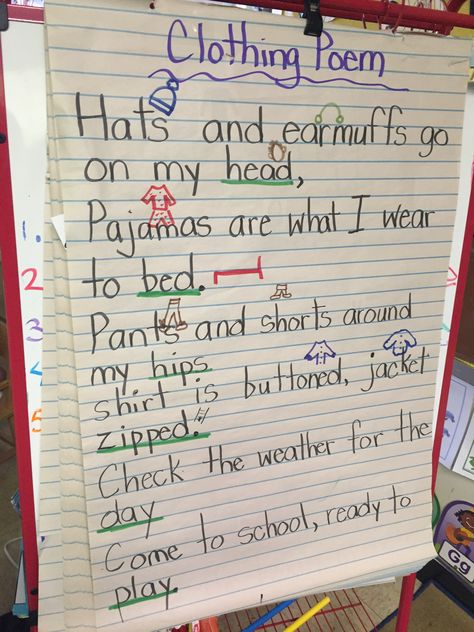 Clothing Poem
Hats and earmuffs go
on my head,
Pajamas are what I wear
to bed.
Pants and shorts around
my hips
shirt is buttoned, jacket
zipped.
Check the weather for the
day
Come to school, ready to
play
1.
2
3
4
5
Gg